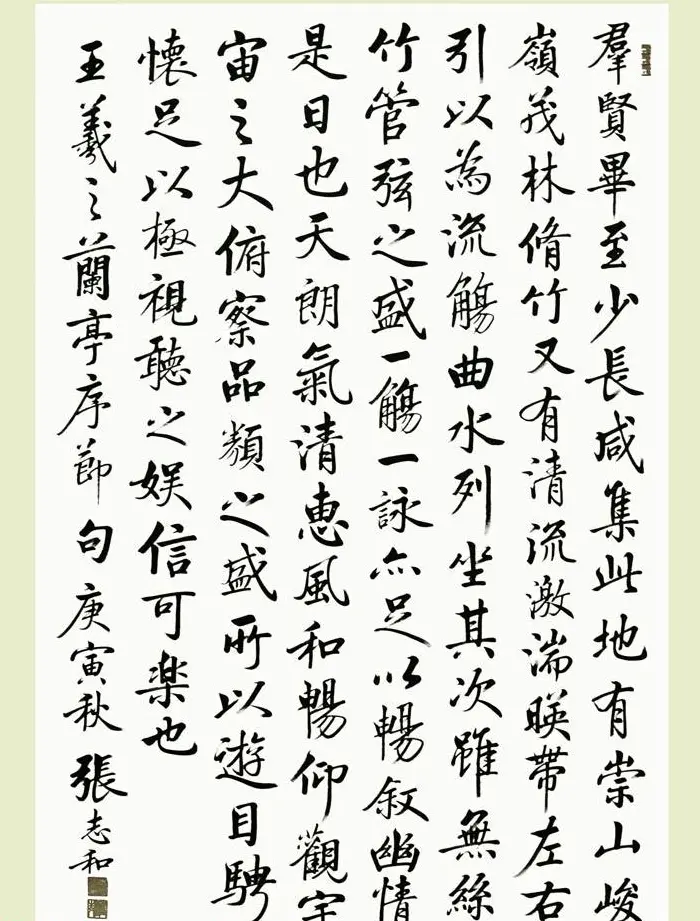 羣賢畢至少長咸集此地有崇山峻
嶺茂林脩竹又有清流激湍暎帶左右
引以為流觴曲水列坐其次雖無絲
竹管弦之盛一觴一詠亦足以暢叙幽情
是日也天朗氣清惠風和暢仰觀宇
宙之大俯察品類之盛所以遊目騁
懷足以極視聽之娱信可楽也
王羲之蘭亭序節句庚寅秋張志和